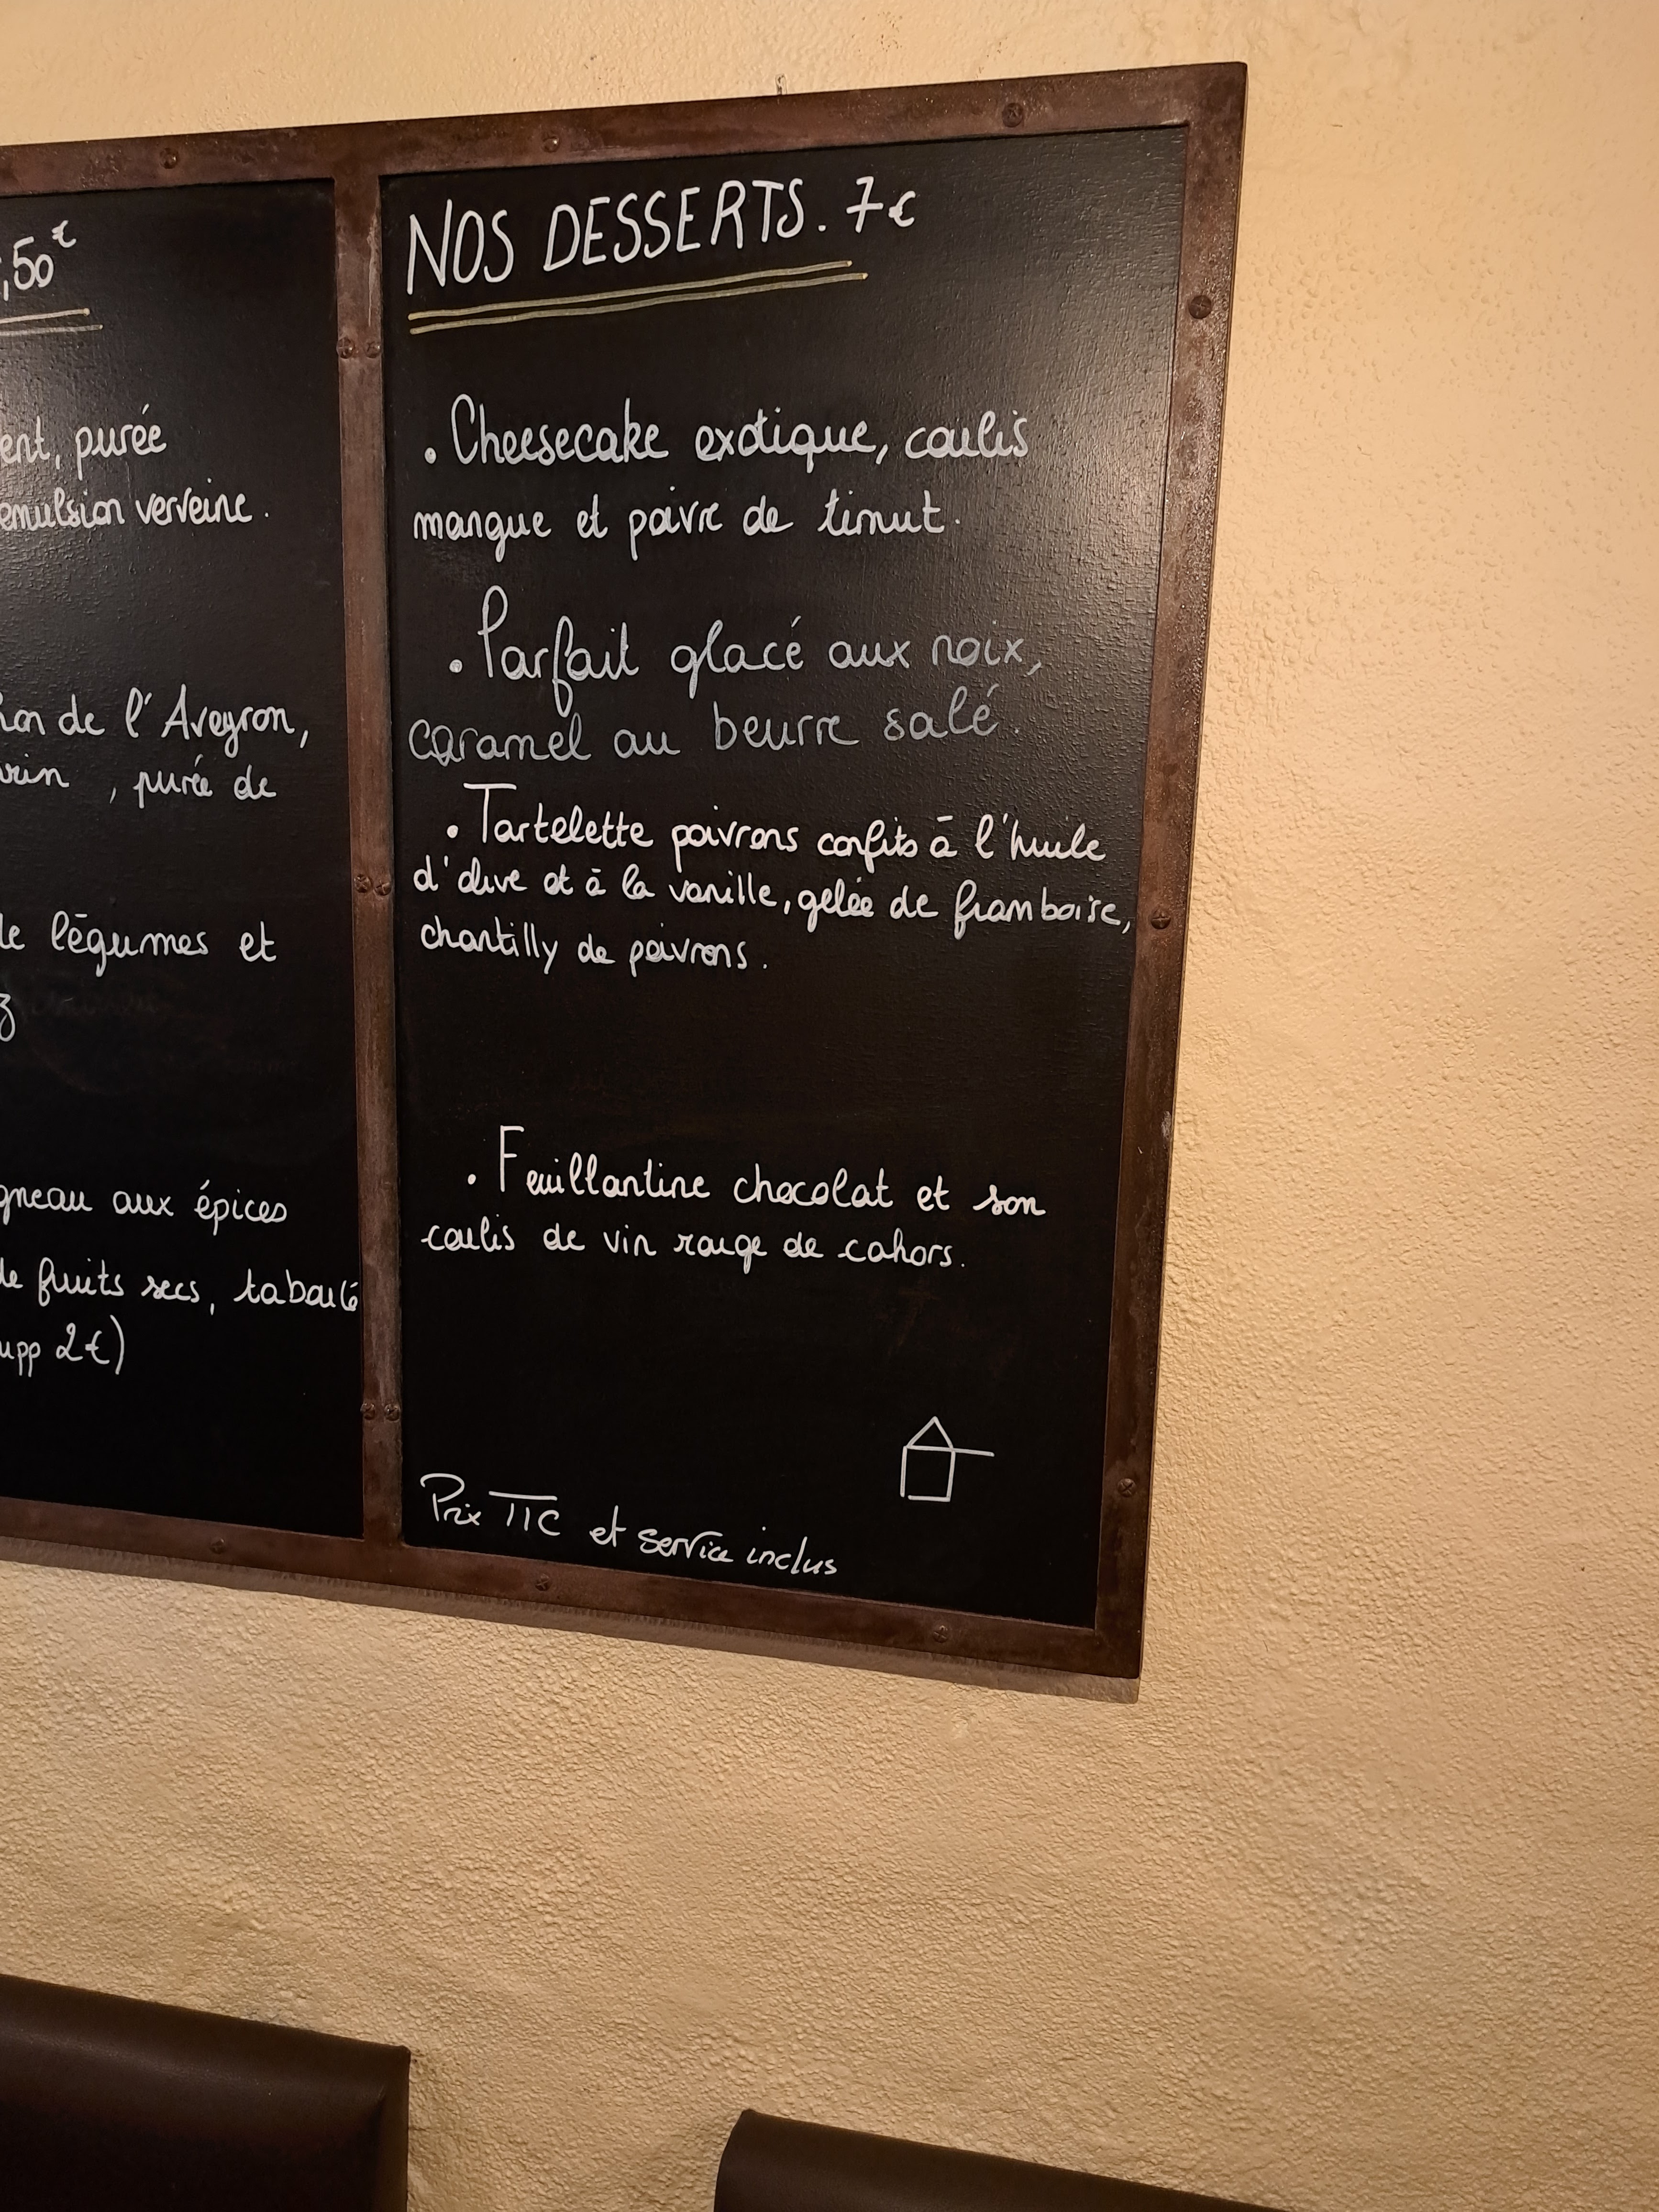 ,50€
purée
emulsion verveine.
de l'Aveyron,
, purée de
de légumes et
aux épices
de fruits secs, taboulé
2€)
NOS DESSERTS. 7€
. Cheesecake exotique, coulis
mangue et poivre de timut.
. Parfait glacé aux noix,
caramel au beurre salé.
. Tartelette poivrons confits à l'huile
d'olive et à la vanille, gelée de framboise,
chantilly de poivrons.
. Feuillantine chocolat et son
coulis de vin rouge de cahors.
Prix TTC et service inclus